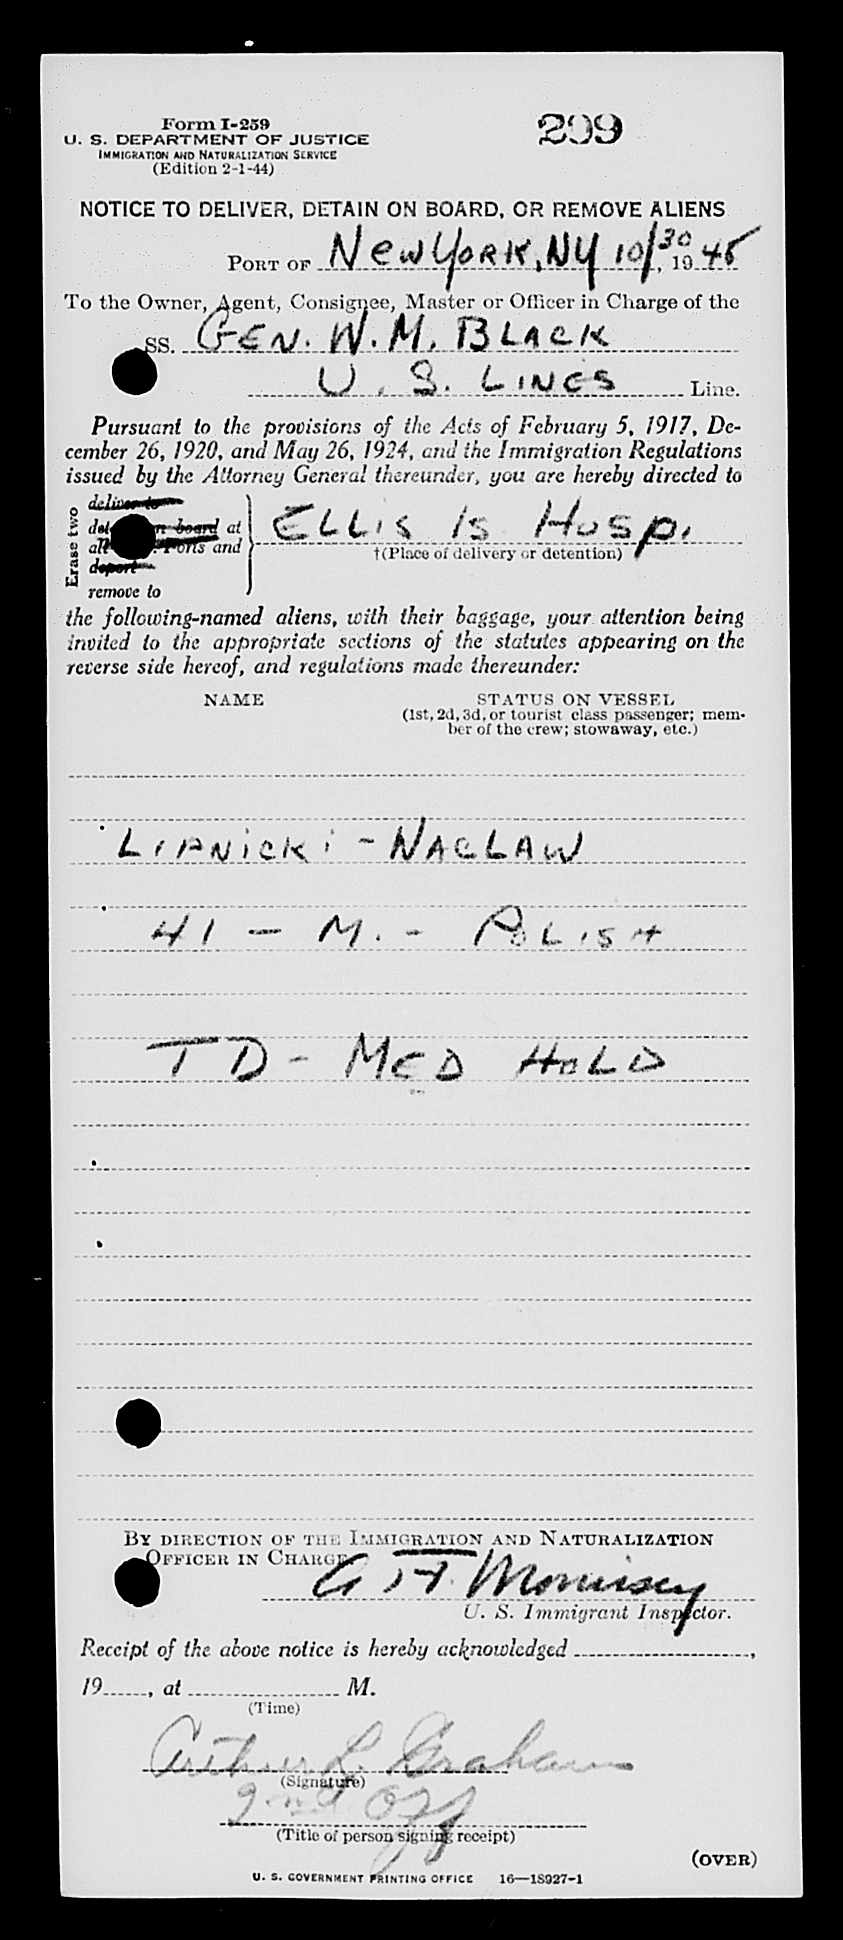 Form I-259
U. S. DEPARTMENT OF JUSTICE
IMMIGRATION AND NATURALIZATION SERVICE
(Edition 2-1-44)
299
NOTICE TO DELIVER, DETAIN ON BOARD, OR REMOVE ALIENS
PORT OF New York, NY 10/30, 1948
To the Owner, Agent, Consignee, Master or Officer in Charge of the
SS. GEN. W. M. BLACK
U. S. LINES Line.
Pursuant to the provisions of the Acts of February 5, 1917, De-
cember 26, 1920, and May 26, 1924, and the Immigration Regulations
issued by the Attorney General thereunder, you are hereby directed to
Erase two
deliver to
board at
Ports and
deport
remove to
ELLIS IS HOSP.
†(Place of delivery or detention)
the following-named aliens, with their baggage, your attention being
invited to the appropriate sections of the statutes appearing on the
reverse side hereof, and regulations made thereunder:
NAME
STATUS ON VESSEL
(1st, 2d, 3d, or tourist class passenger; mem-
ber of the crew; stowaway, etc.)
LIPNICKI - NACLAW
41 - M. - POLISH
TD - MED HOLD
BY DIRECTION OF THE IMMIGRATION AND NATURALIZATION
OFFICER IN CHARGE.
Morrissey
U. S. Immigrant Inspector.
Receipt of the above notice is hereby acknowledged ,
19 , at M.
(Time)
Arthur L. Graham
(Signature)
2nd Off
(Title of person signing receipt)
(OVER)
U. S. GOVERNMENT PRINTING OFFICE 16—18927-1